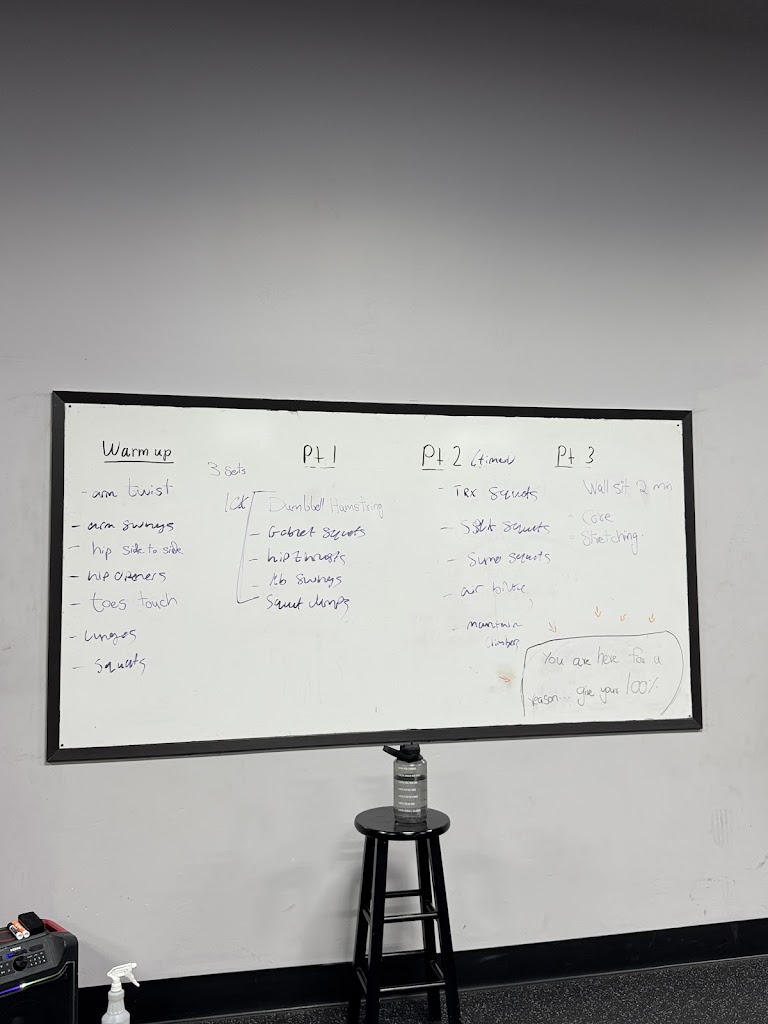 Warm up
- arm twist
- arm swings
- hip side to side
- hip openers
- toes touch
- lunges
- squats
3 sets
Pt 1
Dumbbell Hamstring
- Goblet squats
- hip thrusts
- kb swings
- Squat Jumps
Pt 2 (timed
- TRX squats
- Split squats
- Sumo squats
- air bike
- mountain
climber
Pt 3
Wall sit 2 min
- Core
- Stretching
You are here for a
reason... give your 100%